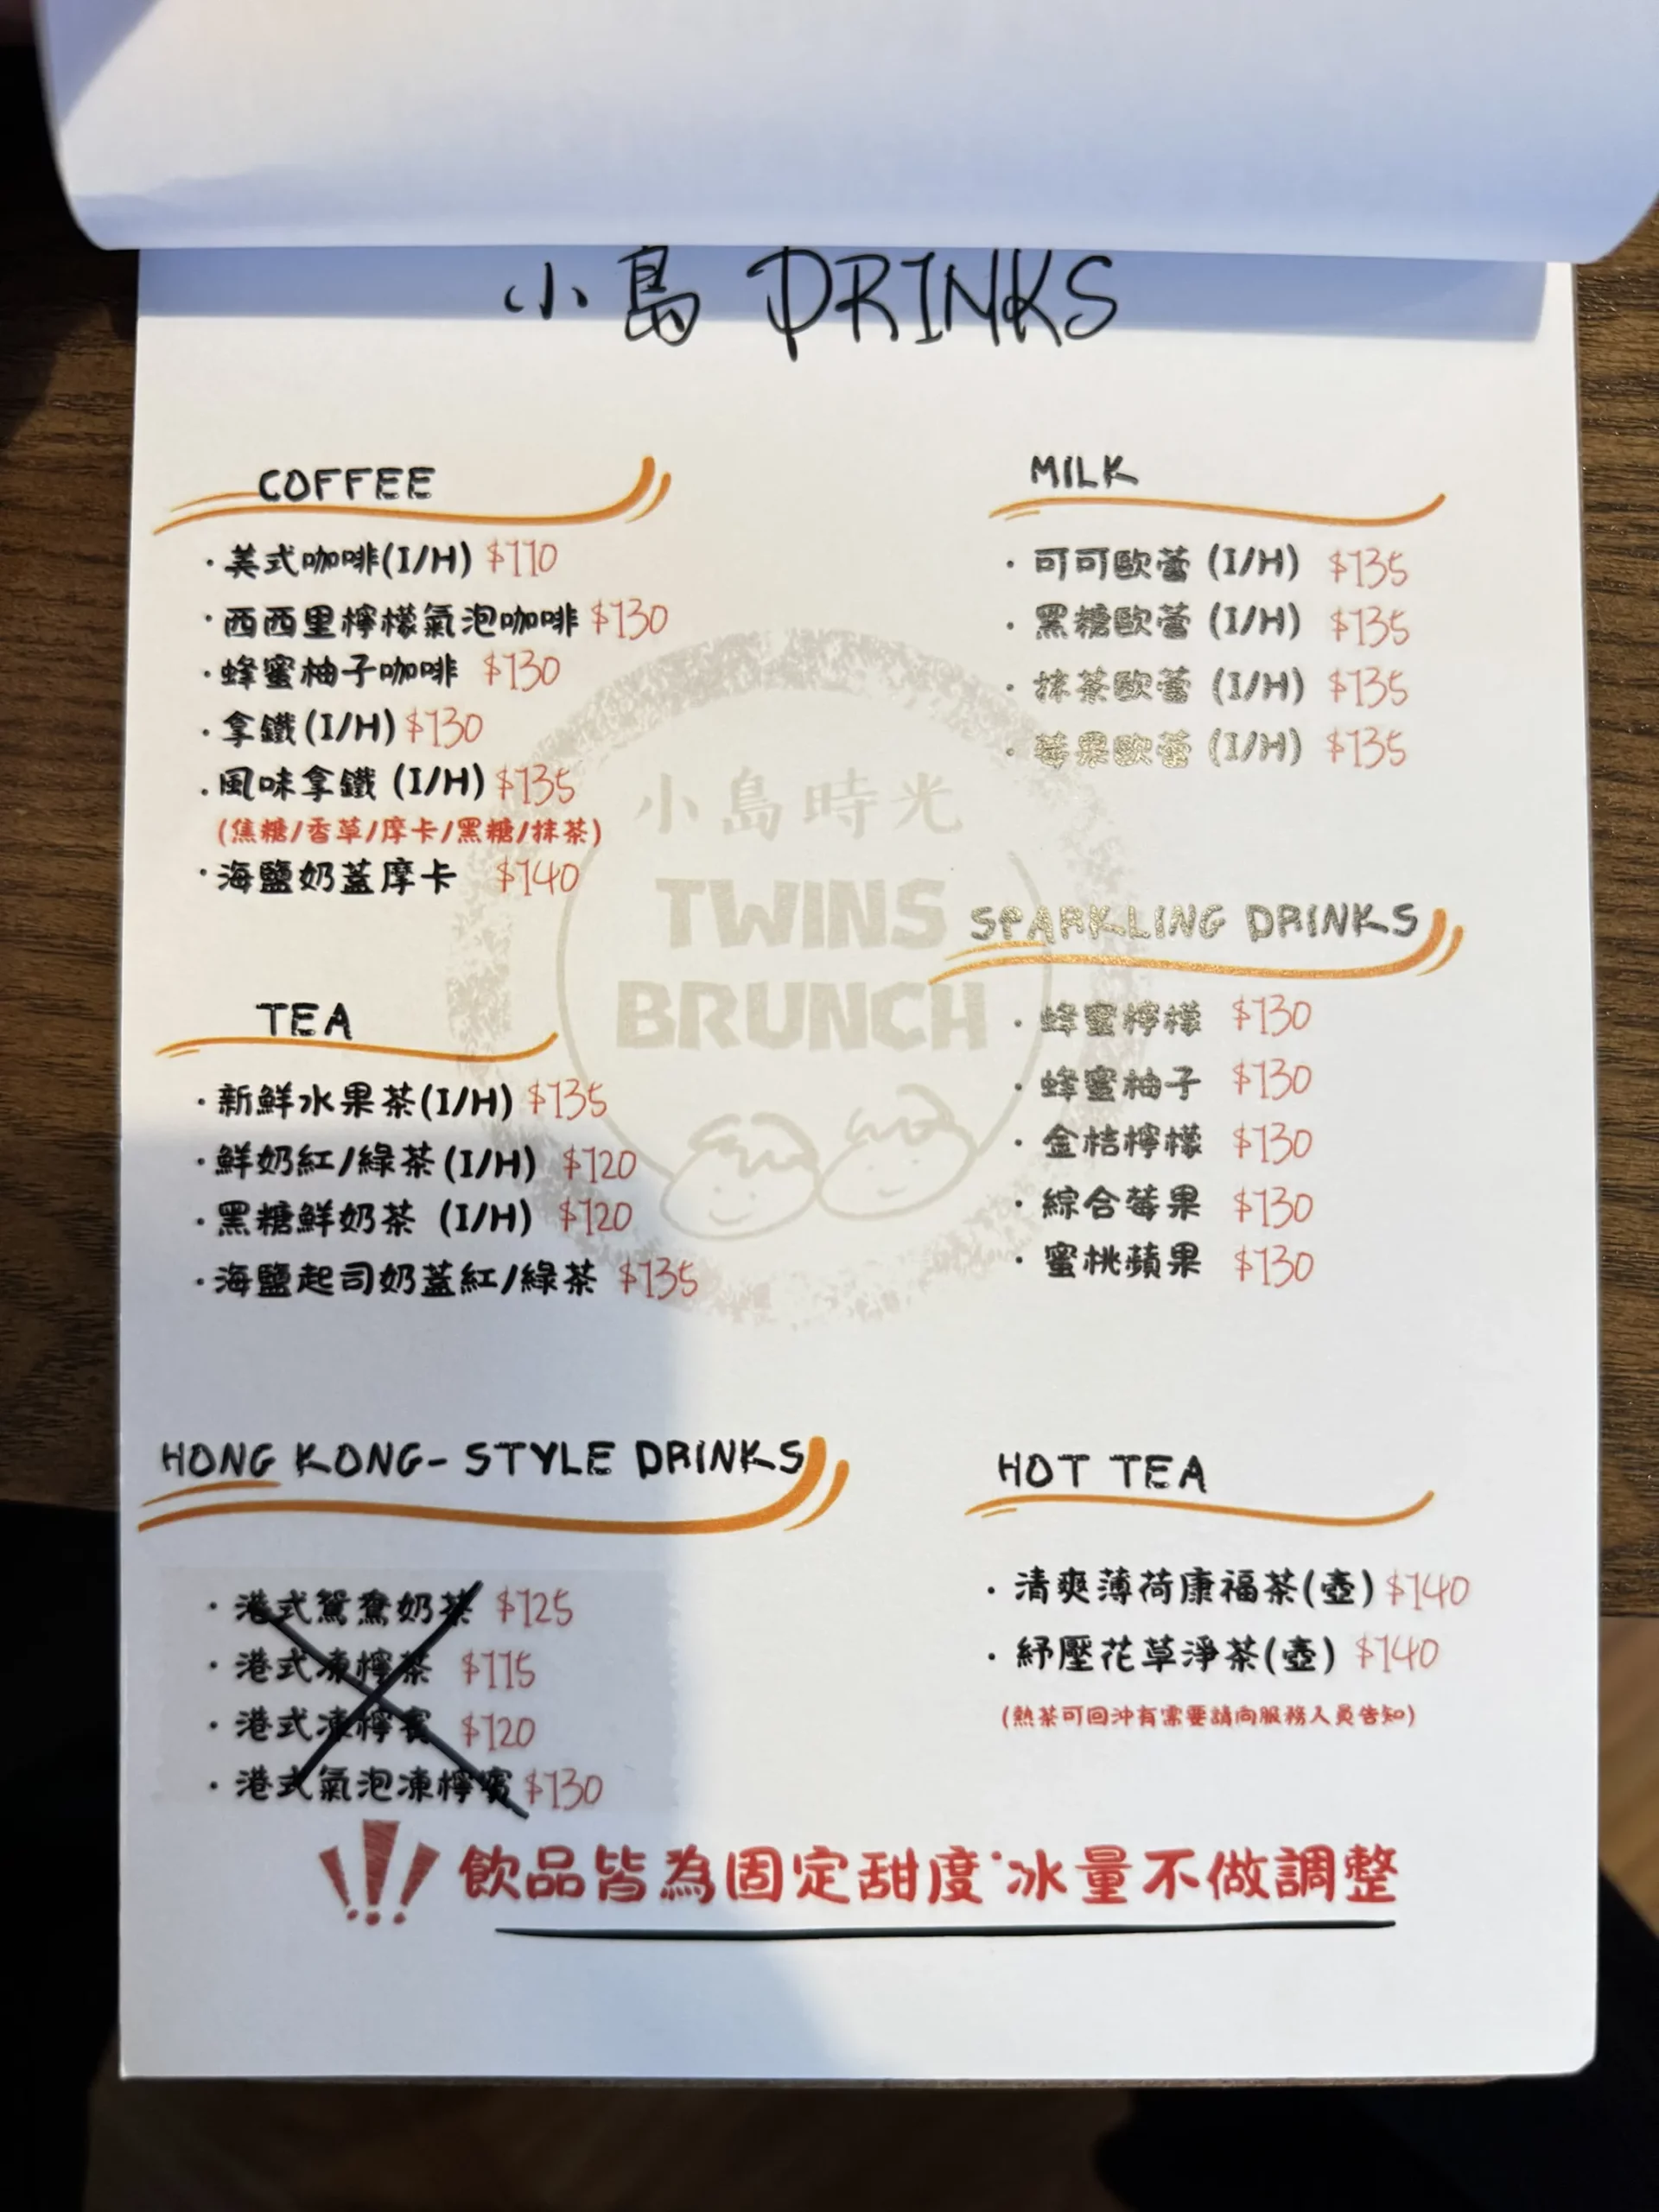 小島 DRINKS
COFFEE
·美式咖啡(I/H) $110
·西西里檸檬氣泡咖啡 $130
·蜂蜜柚子咖啡 $130
·拿鐵(I/H) $130
·風味拿鐵 (I/H) $135
(焦糖/香草/摩卡/黑糖/抹茶)
·海鹽奶蓋摩卡 $140
TEA
·新鮮水果茶(I/H) $135
·鮮奶紅/綠茶(I/H) $120
·黑糖鮮奶茶 (I/H) $120
·海鹽起司奶蓋紅/綠茶 $135
HONG KONG-STYLE DRINKS
·港式鴛鴦奶茶 $125
·港式凍檸茶 $115
·港式凍檸賓 $120
·港式氣泡凍檸賓 $130
MILK
·可可歐蕾 (I/H) $135
·黑糖歐蕾 (I/H) $135
·抹茶歐蕾 (I/H) $135
·莓果歐蕾 (I/H) $135
SPARKLING DRINKS
·蜂蜜檸檬 $130
·蜂蜜柚子 $130
·金桔檸檬 $130
·綜合莓果 $130
·蜜桃蘋果 $130
HOT TEA
·清爽薄荷康福茶(壺) $140
·紓壓花草淨茶(壺) $140
(熱茶可回沖有需要請向服務人員告知)
小島時光
TWINS
BRUNCH
!!! 飲品皆為固定甜度·冰量不做調整